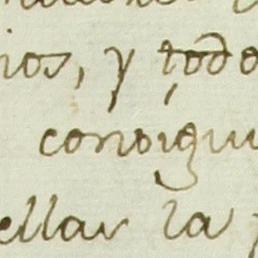 ios, y todo
consigui
ellar la